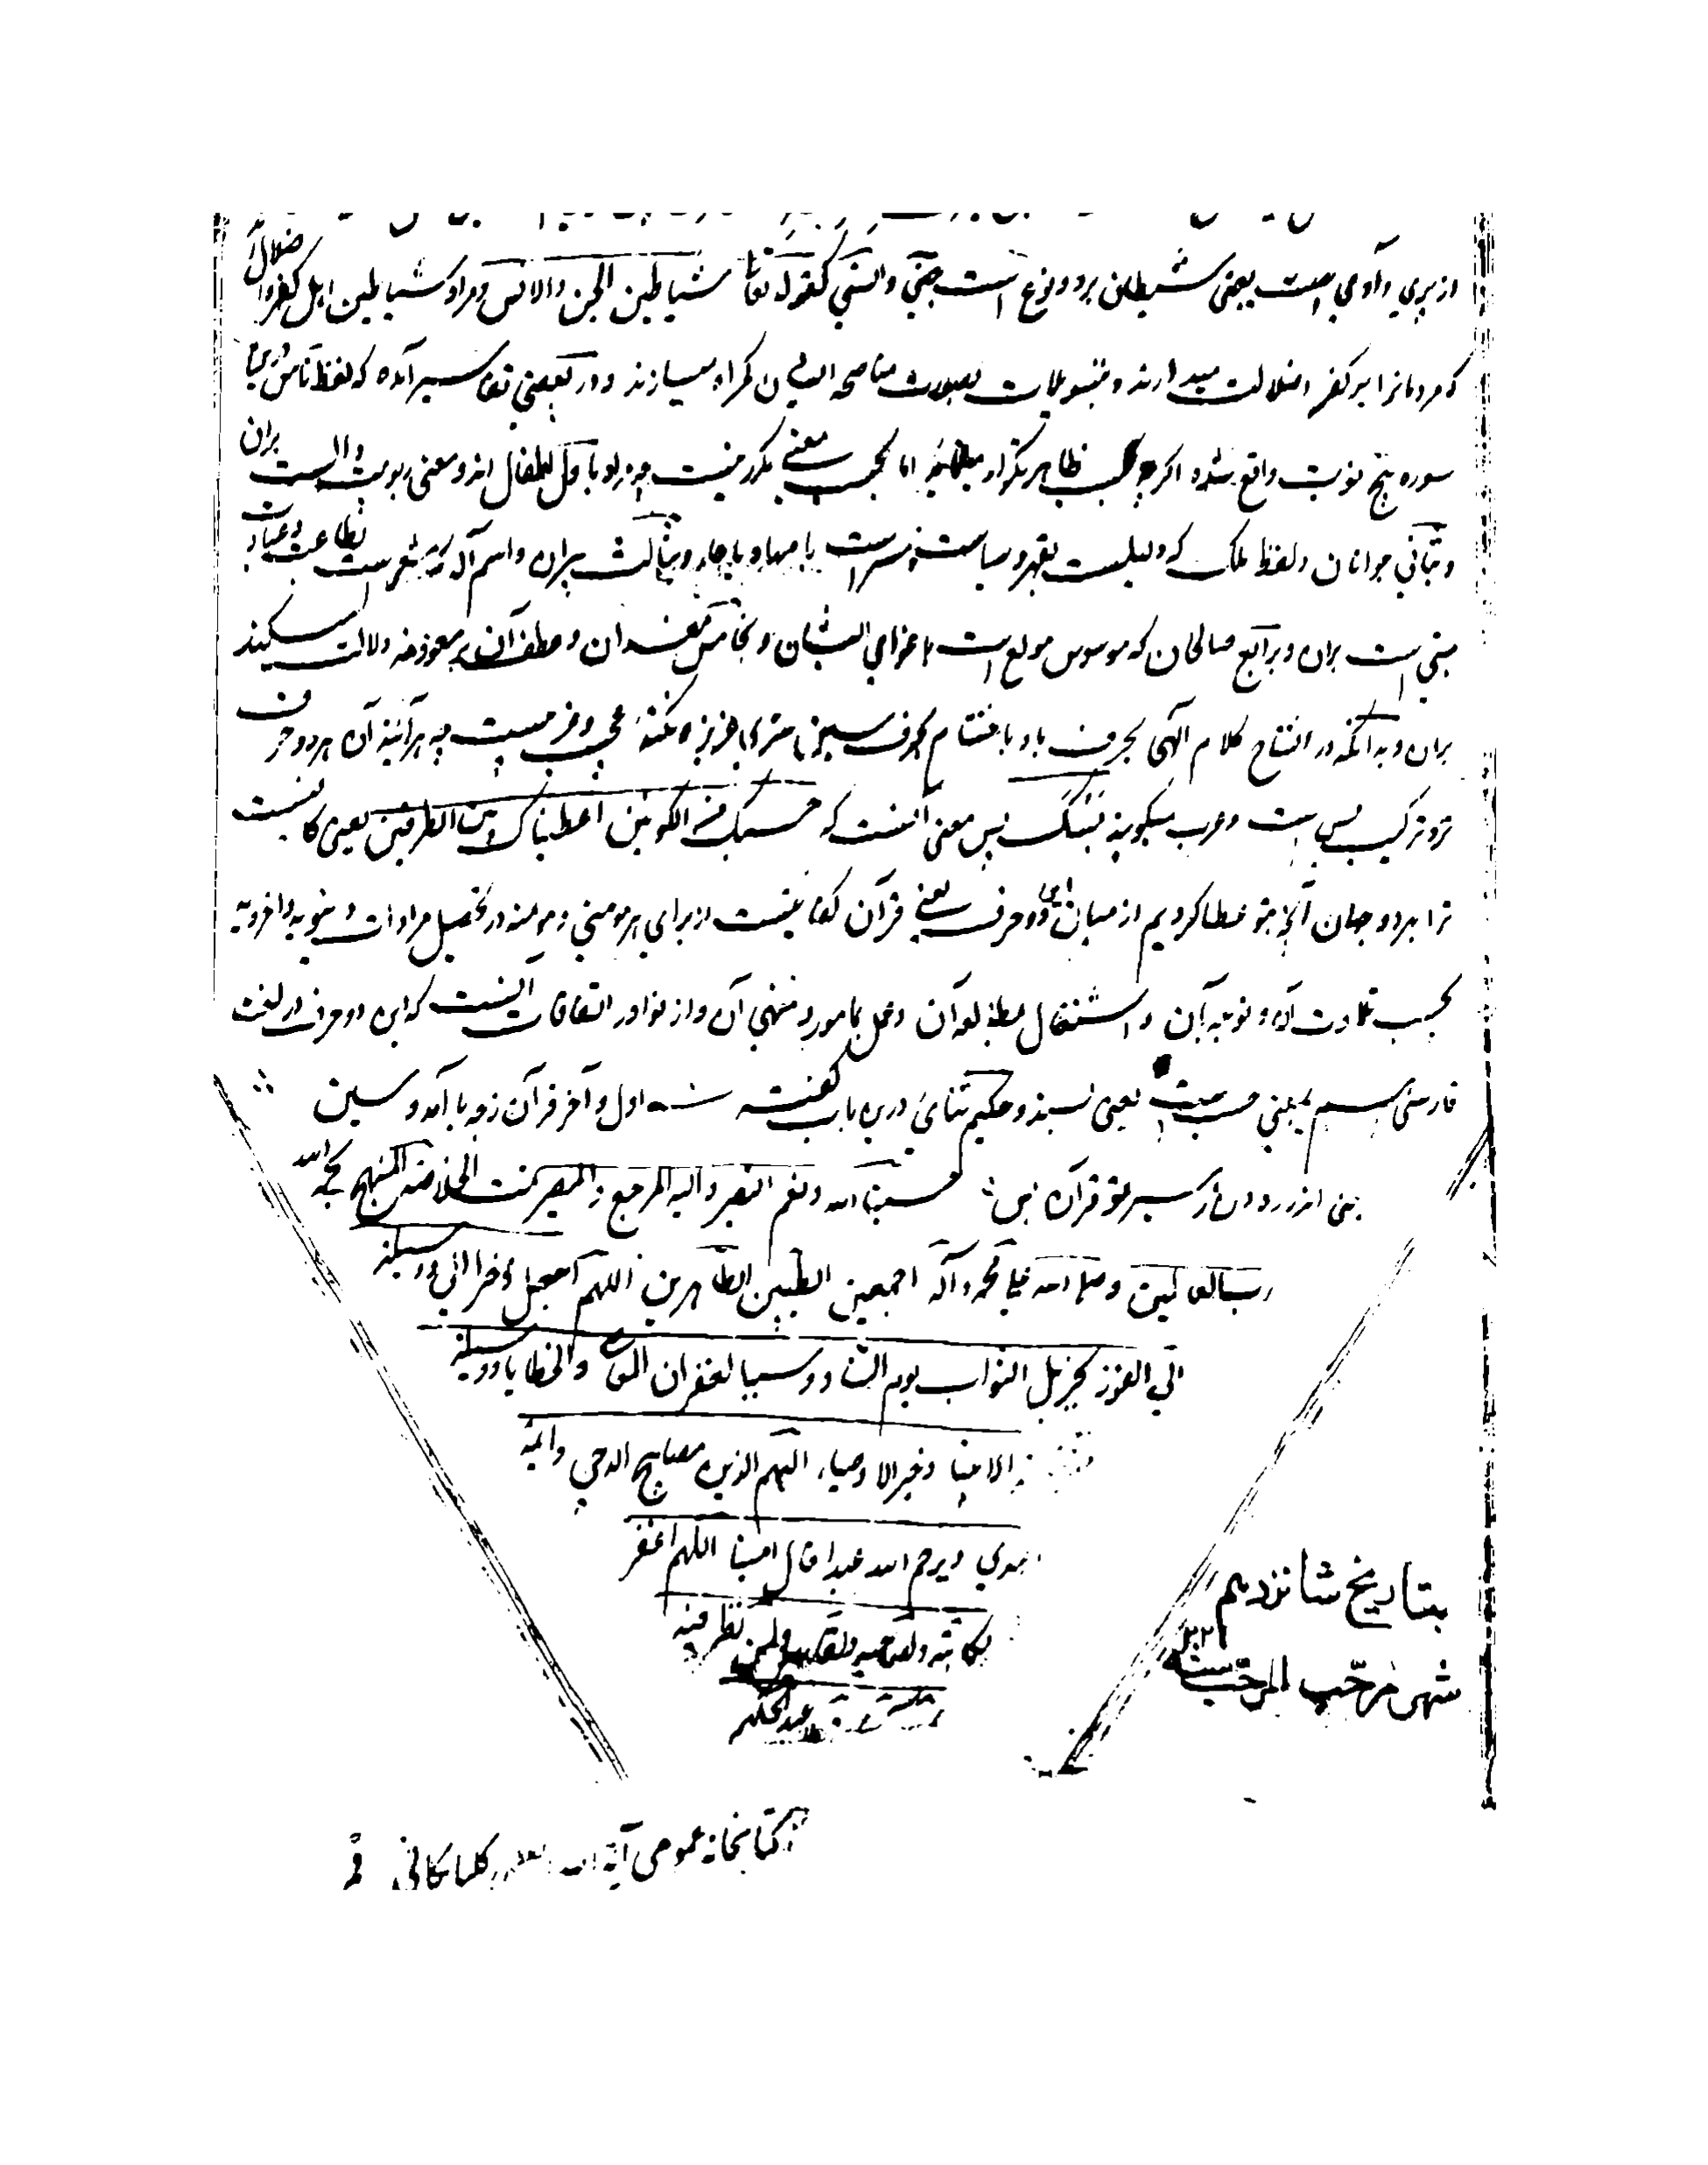 از پری و آدمی است یعنی شیطان بر دو نوع است جنی و انسی کقوله تعالی شیاطین الجن والانس و مراد شیاطین اهل کفر و ضلال اند
که مردمانرا بر کفر و ضلالت میدارند و بتسویلات بصورت مناصحه ایشان گمراه میسازند و در بعضی تفاسیر آمده که لفظ ناس درین
سوره پنج نوبت واقع شده اگرچه بحسب ظاهر تکرار مینماید اما بحسب معنی مکرر نیست چه مراد باول اطفال اند و معنی ربوبیت دال است بران
و بثانی جوانان و لفظ ملک که دلیلست بقهر و سیاست و بثالث پیران و اسم آله که مشعر است بطاعت و عبادت
مبنی است بران و برابع صالحان که موسوس مولع است باغوای ایشان و بخامس مفسدان و عطف آن بر معوذ منه دلالت میکند
بران و بدانکه در افتتاح کلام الهی بحرف با و باختتام بحرف سین نکته عجیب و غریبست چه هر آینه آن هر دو حرف
ترکیب بس است و عرب میگوید بسک پس معنی آنست که حسبک من الکونین اعطیناک بین الطرفین یعنی کافیست
ترا بهر دو جهان آنچه بتو عطا کردیم از میان این دو حرف یعنی قرآن کفایتست از برای هر مومنی و مومنه در تحصیل مرادات دنیویه و اخرویه
بحسب تلاوت آن و اشتغال بمطالعه آن و عمل بمامور و منهی آن و از نوادر اتفاقات آنست که این دو حرف در لغت
فارسی اسم بمعنی حسب است یعنی بسند و حکیم سنائی درین باب گفته اول و آخر قرآن زچه با آمد و سین
یعنی اندر ره دین رهبر تو قرآن بس حسبنا الله و نعم النصیر و الیه المرجع و المصیر تمت الخلاصة المنهج بحمد الله
رب العالمین و صلی الله علی محمد و آله اجمعین الطیبین الطاهرین اللهم اجعل ذخرا لی و وسیلة
الی الفوز بجزیل الثواب یوم التناد و سببا لغفران المعاصی والخطایا و وسیلة
الانبیا و خیر الاوصیاء الهم الذین مصابیح الدجی وائمة
الهدی ویرحم الله عبدا قال امینا اللهم اغفر
لکاتبه ولصاحبه ولمن نظر فیه
بتاریخ شانزدهم
شهر مرجب المرجب سنه
کتابخانه عمومی آیة الله گلپایگانی قم